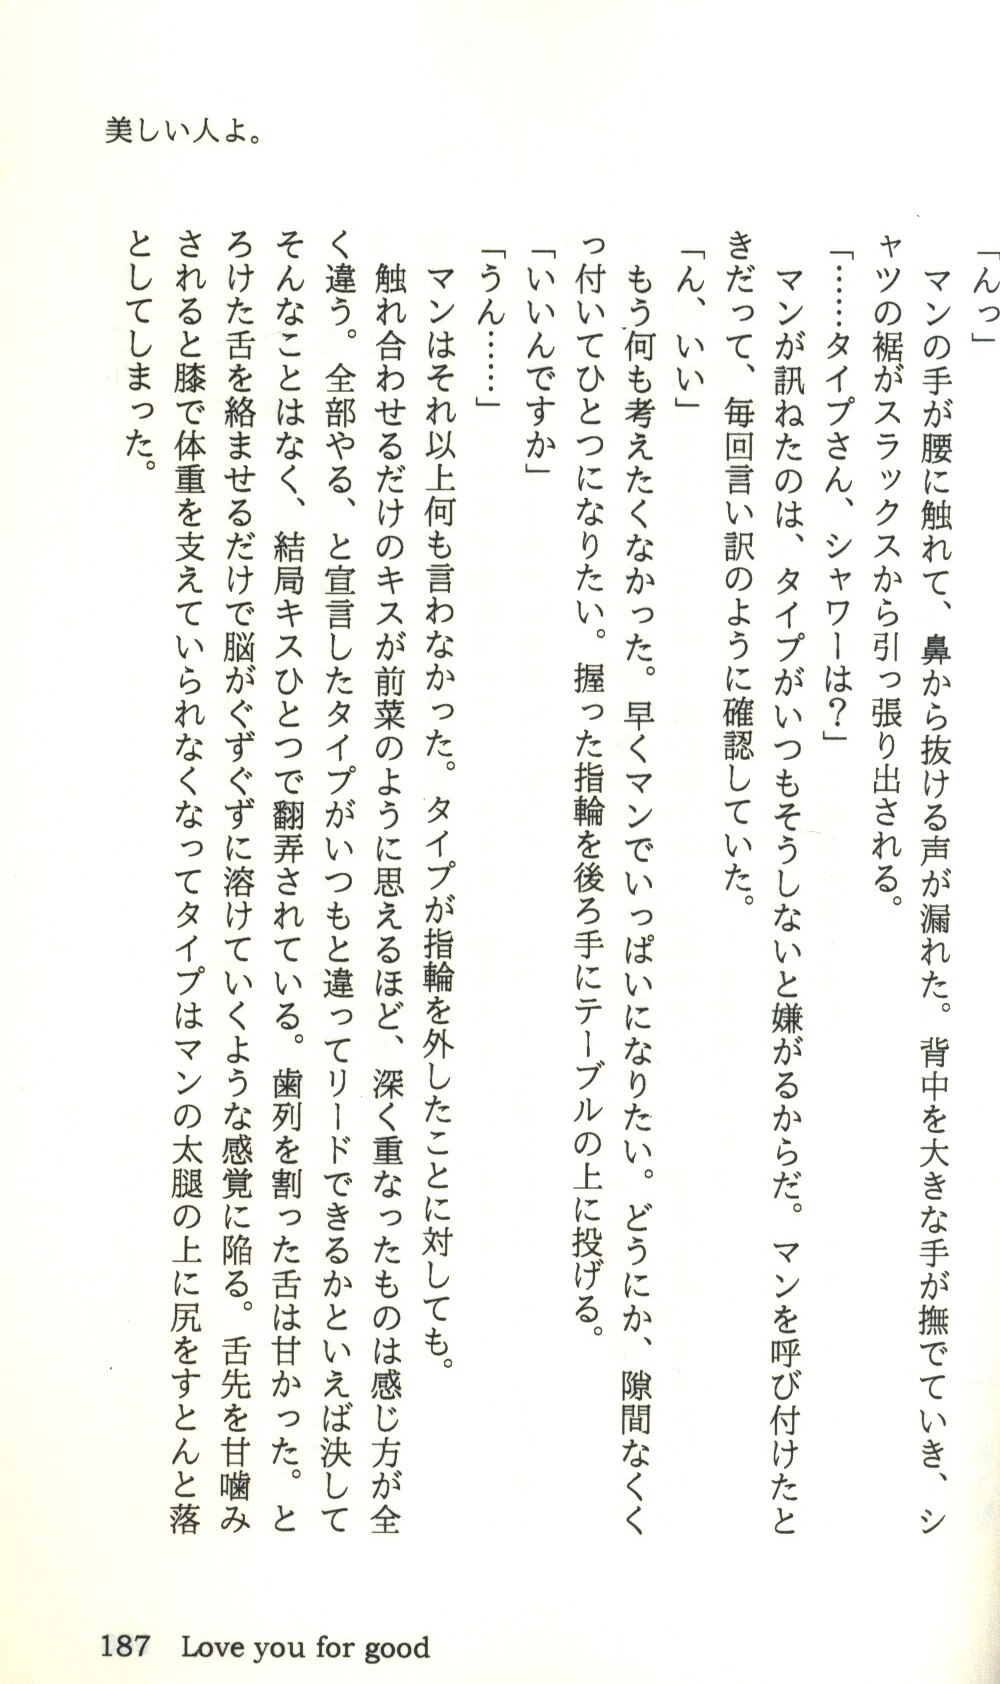 美しい人よ。
「んっ」
マンの手が腰に触れて、鼻から抜ける声が漏れた。背中を大きな手が撫でていき、シ
ャツの裾がスラックスから引っ張り出される。
「……タイプさん、シャワーは？」
マンが訊ねたのは、タイプがいつもそうしないと嫌がるからだ。マンを呼び付けたと
きだって、毎回言い訳のように確認していた。
「ん、いい」
もう何も考えたくなかった。早くマンでいっぱいになりたい。どうにか、隙間なくく
っ付いてひとつになりたい。握った指輪を後ろ手にテーブルの上に投げる。
「いいんですか」
「うん……」
マンはそれ以上何も言わなかった。タイプが指輪を外したことに対しても。
触れ合わせるだけのキスが前菜のように思えるほど、深く重なったものは感じ方が全
く違う。全部やる、と宣言したタイプがいつもと違ってリードできるかといえば決して
そんなことはなく、結局キスひとつで翻弄されている。歯列を割った舌は甘かった。と
ろけた舌を絡ませるだけで脳がぐずぐずに溶けていくような感覚に陥る。舌先を甘噛み
されると膝で体重を支えていられなくなってタイプはマンの太腿の上に尻をすとんと落
としてしまった。
187 Love you for good